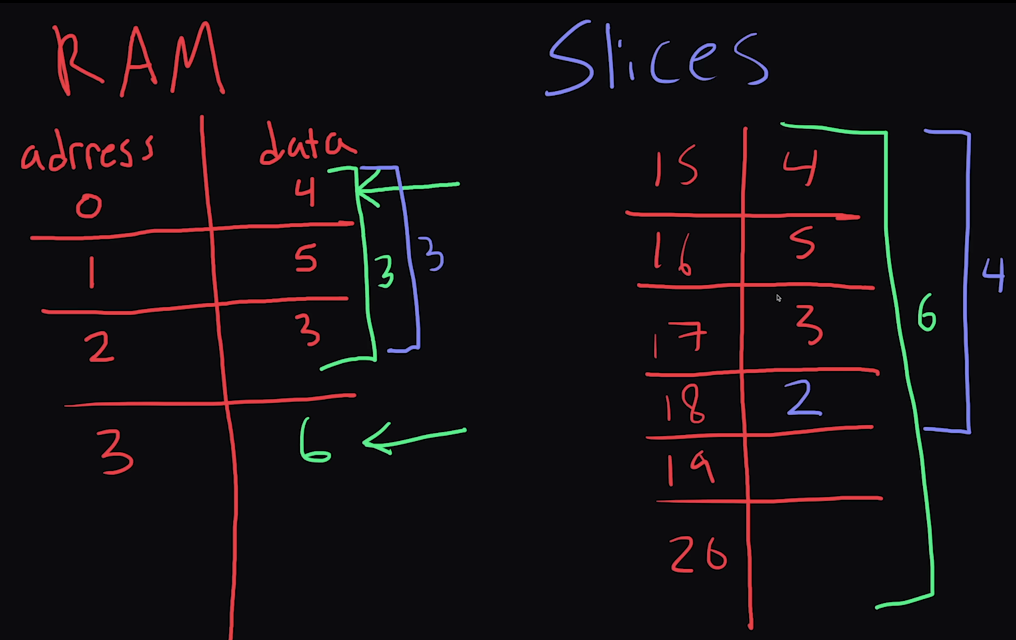 RAM
adrress data
0 4
1 5
2 3
3 6
3 3
Slices
15 4
16 5
17 3
18 2
19
20
6 4